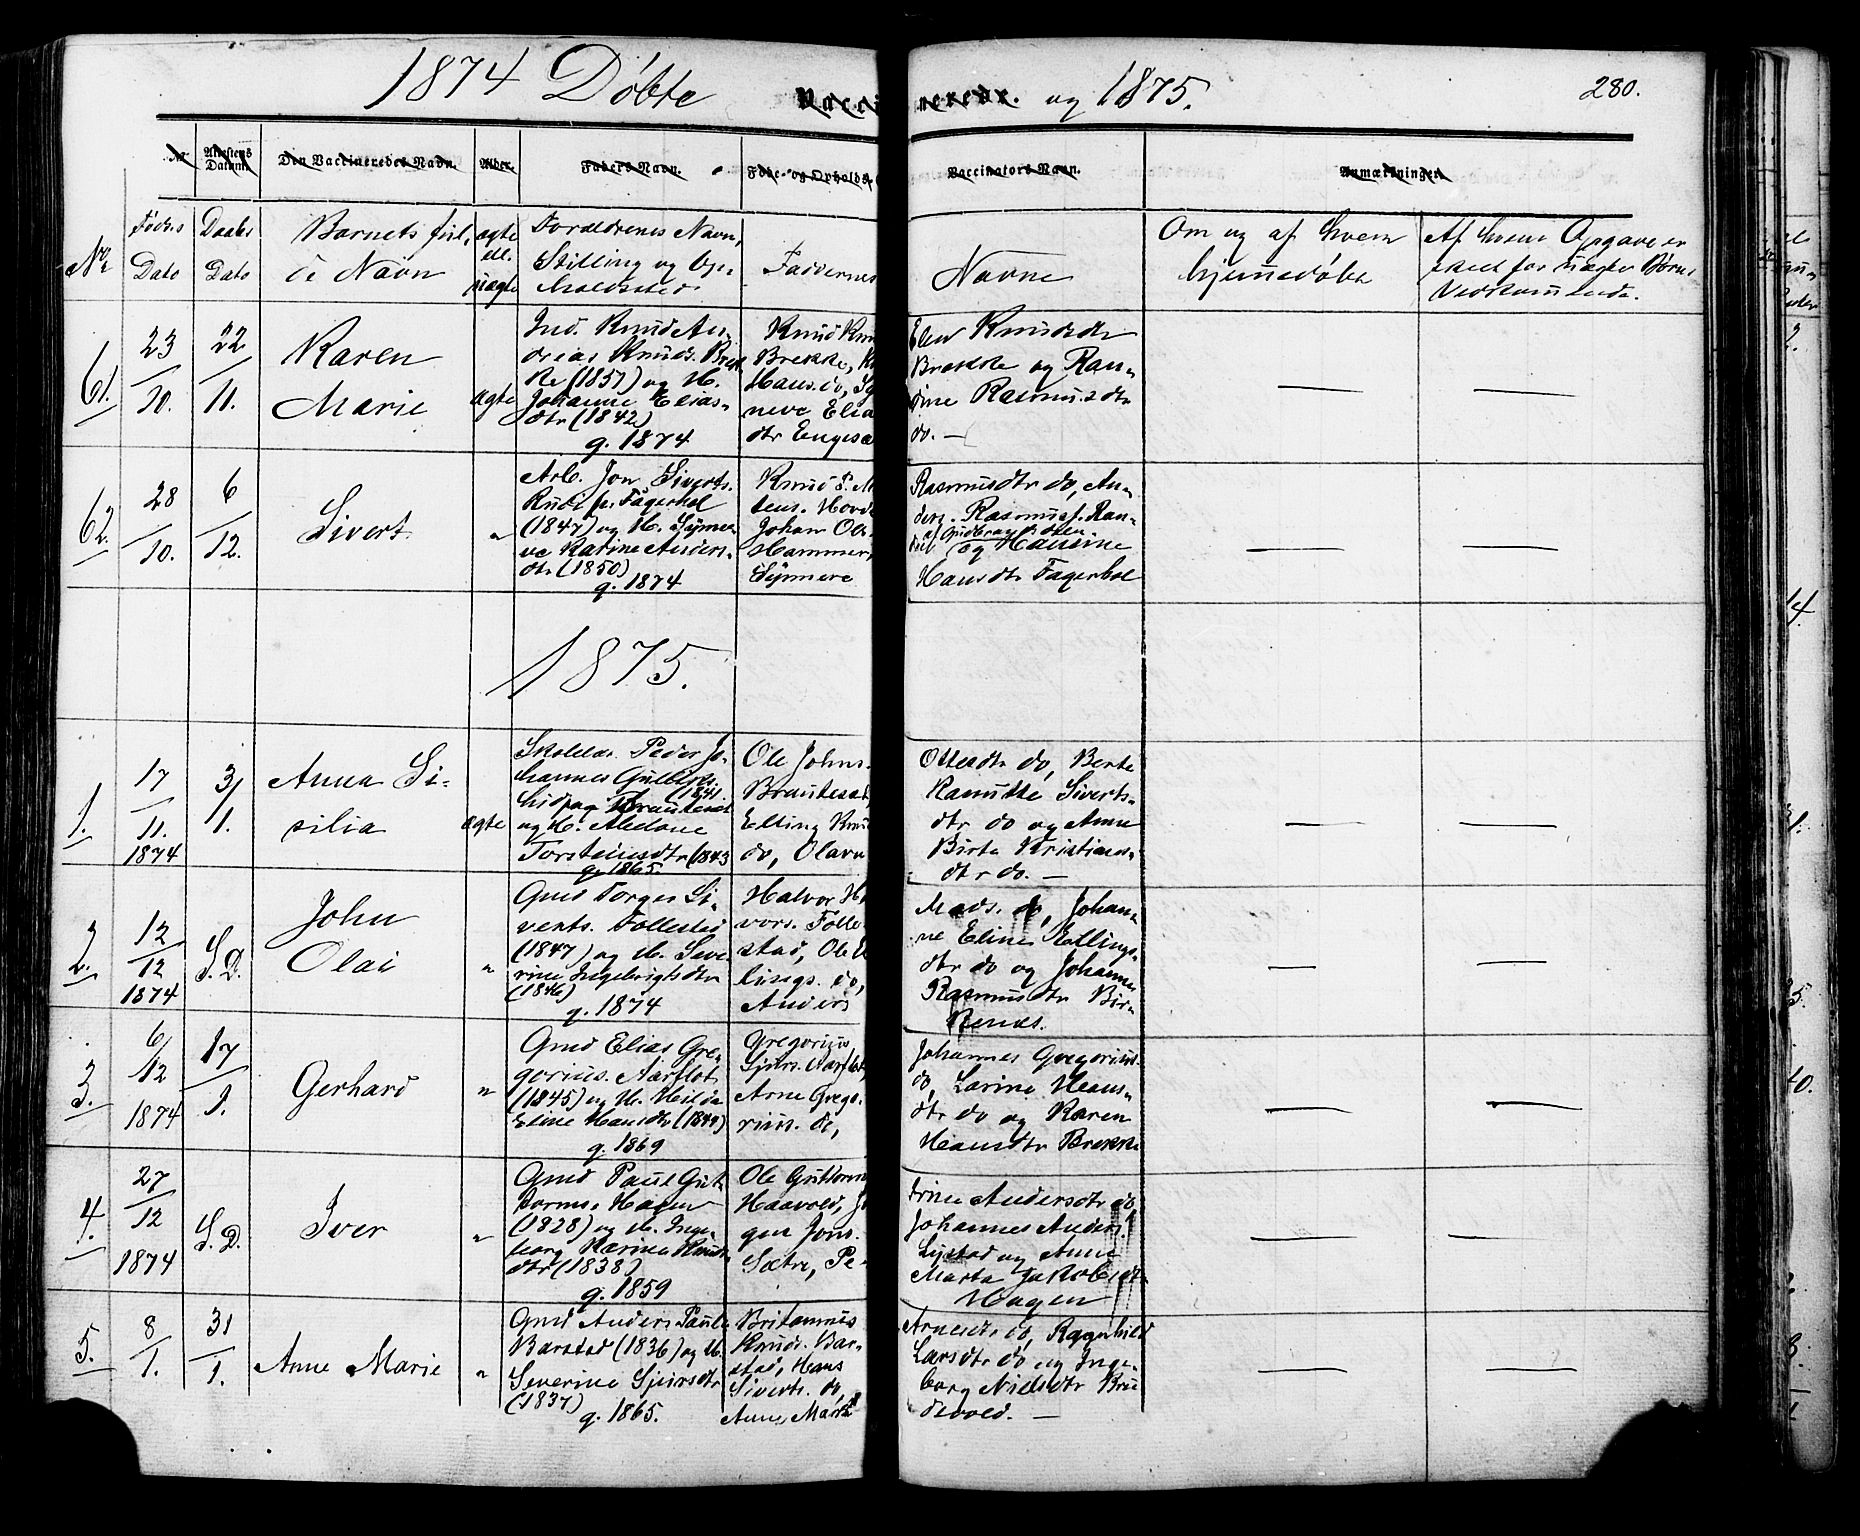 1874 Døbte Vaccinerede. og 1875.
280.
No. Attestens Datum. Den Vaccineredes Navn. Alder. Faders Navn. Føde- og Opholds-
Vaccinators Navn. Anmærkninger.
No. Fødsels Dato Daabs Dato
Barnets ful-
de Navn
ægte
ell.
uægte
Forældrenes Navn,
Stilling og Op-
holdssted
Faddernes
Navne
Om og af hvem
hjemmedøbt
Af hvem Opgave er
skeet for uægte Børns
Vedkommende.
61.
23/10.
22/11.
Karen
Marie
ægte
Ind. Knud An-
dreas Knuds. Brek-
ke (1851) og H.
Johanne Elias-
dtr (1842)
g. 1874
Knud Knu
Brekke, K
Hans. do, Sy
neve Elia
dtr Engesæ
Elen Knudsdtr
Brekke og Ran-
dine Rasmusdtr
do. —
62.
28/10.
6/12.
Sivert
"
Arb. Jon Siverts.
Rudi p. Fagerhol
(1847) og H. Synne-
ve Karine Anders-
dtr (1850)
g. 1874
Knud P. M
tens. Hovde
Johan Ole
Hammer,
Synneve
Rasmusdtr do, An-
ders. Rasmus
og Hansine
Hansdtr Fagerhol
1875.
1.
17/11. 1874
3/1.
Anna Si-
silia
ægte
Skolelær. Peder Jo-
hannes Gulbrs.
(1841
og H. Aledone
Torsteinsdtr (1843
g. 1865.
Ole Johns.
Brautesæt,
Elling Knu
do, Olava
Ottesdtr do, Berte
Kanutte Siverts-
dtr do og Anne
Birte Kristians-
dtr do. —
2.
12/12 1874
S. D.
John
Olai
"
Gmd Torger Si-
verts. Follestad
(1847) og H. Seve-
rine Ingebrigtsdtr
(1846)
g. 1874
Halvor H
vors. Folle-
stad, Ole E
lings. do,
Anders
Mads. do, Johan-
ne Eline Ellings-
dtr do og Johanne
Rasmusdtr Bir-
kenes.
3.
6/12 1874
17/1.
Gerhard
"
Gmd Elias Gre-
gorius. Aarflot
(1845) og H. Hilda
Eline Hansdtr (1849)
g. 1869
Gregorius
Sjurs. Aarflot,
Arne Grego-
rius. do,
Johannes Gregorius.
do, Larine Hans-
dtr do og Karen
Hansdtr Brekke
4.
27/12 1874
S. D.
Iver
"
Gmd Paul Gut-
torms. Hagen
(1828) og H. Inge-
borg Karine Knuds-
dtr (1838)
g. 1859
Ole Guttorm
Haavold, Jø
gen Jons.
Sætre, Pe-
trine Andersdtr do,
Johannes Anders.
Lystad og Anne
Marta Jakobsdtr
Hagen
5.
8/1.
31/1.
Anne Marie
"
Gmd Anders Pauls.
Barstad (1836) og H.
Severine Sjursdtr
(1837)
g. 1865.
Britannus
Knuds. Bar-
stad, Hans
Siverts. do,
Anne Marta
Arnesdtr do, Ragnhild
Larsdtr do og Inge-
borg Nielsdtr Bru
devold. —